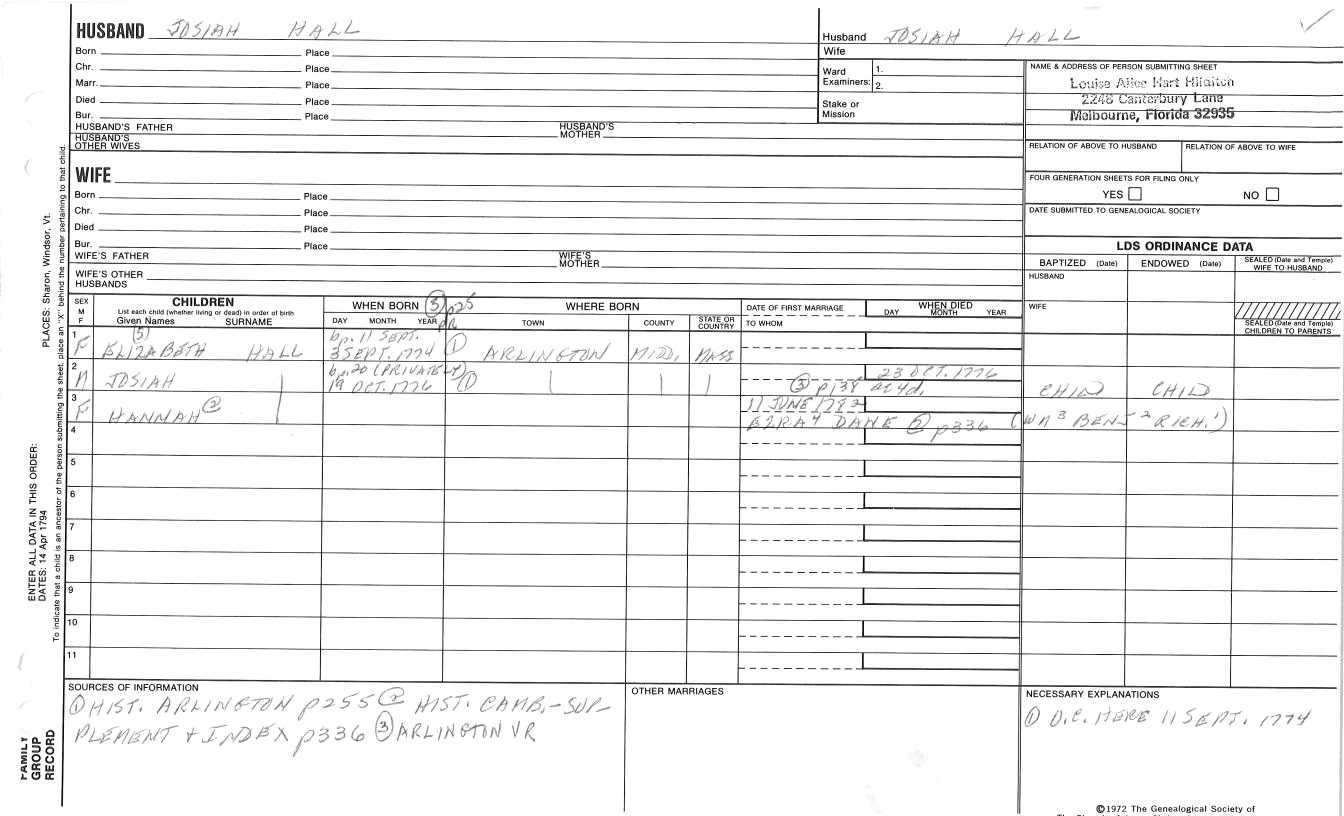 HUSBAND JOSIAH HALL
Born Place
Chr. Place
Marr. Place
Died Place
Bur. Place
HUSBAND'S FATHER HUSBAND'S MOTHER
HUSBAND'S OTHER WIVES
Husband JOSIAH HALL
Wife
Ward Examiners: 1.
2.
Stake or Mission
NAME & ADDRESS OF PERSON SUBMITTING SHEET
Louise Alice Hart
2246 Canterbury Lane
Melbourne, Florida 32935
RELATION OF ABOVE TO HUSBAND RELATION OF ABOVE TO WIFE
FOUR GENERATION SHEETS FOR FILING ONLY
YES NO
DATE SUBMITTED TO GENEALOGICAL SOCIETY
WIFE
Born Place
Chr. Place
Died Place
Bur. Place
WIFE'S FATHER WIFE'S MOTHER
WIFE'S OTHER HUSBANDS
LDS ORDINANCE DATA
BAPTIZED (Date) ENDOWED (Date) SEALED (Date and Temple) WIFE TO HUSBAND
HUSBAND
WIFE
SEALED (Date and Temple) CHILDREN TO PARENTS
SEX M F
CHILDREN
List each child (whether living or dead) in order of birth
Given Names SURNAME
WHEN BORN ③ p25 VR
DAY MONTH YEAR
WHERE BORN
TOWN COUNTY STATE OR COUNTRY
DATE OF FIRST MARRIAGE
TO WHOM
WHEN DIED
DAY MONTH YEAR
1 (5) bp. 11 SEPT.
F ELIZABETH HALL 3 SEPT. 1774 ① ARLINGTON MIDD. MASS
2 bp. 20 (PRIVATELY) 23 OCT. 1776
M JOSIAH 19 OCT. 1776 ① ③ p138 ae 4d. CHILD CHILD
3 11 JUNE 1792
F HANNAH ② EZRA⁴ DANE ② p336 (WM³ BENJ² RICH.¹)
4
5
6
7
8
9
10
11
SOURCES OF INFORMATION
① HIST. ARLINGTON p255 ② HIST. CAMB.-SUP-
PLEMENT + INDEX p336 ③ ARLINGTON VR
OTHER MARRIAGES
NECESSARY EXPLANATIONS
① O.C. HERE 11 SEPT. 1774
©1972 The Genealogical Society of
PLACES: Sharon, Windsor, Vt.
ENTER ALL DATA IN THIS ORDER:
DATES: 14 Apr 1794
To indicate that a child is an ancestor of the person submitting the sheet, place an "X" behind the number pertaining to that child.
FAMILY GROUP RECORD